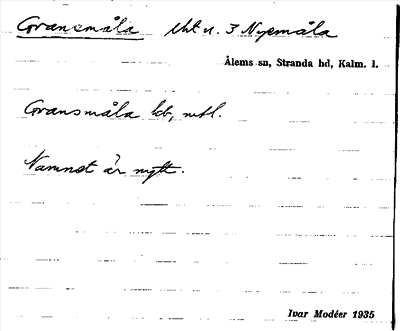 Göransmåla lht u. 3 Nyemåla
Ålems sn, Stranda hd, Kalm. l.
Göransmåla kb, mtl.
Namnet är nytt.
Ivar Modéer 1935